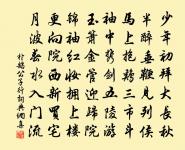 少年初拜大長秋
半醉垂鞭見列侯
馬上抱雞三市鬥
袖中攜劍五陵遊
玉簫金管迎歸院
錦袖紅妝擁上樓
更向院西新買宅
月波春水入門流
公子行